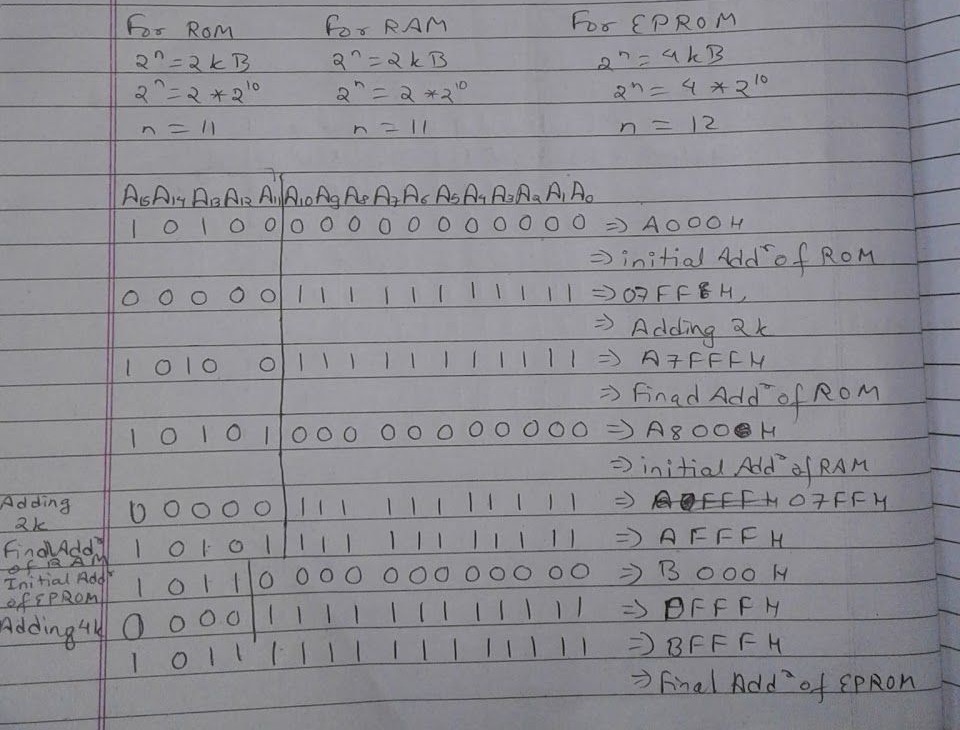 For ROM For RAM For EPROM
2ⁿ = 2 k B 2ⁿ = 2 k B 2ⁿ = 4 k B
2ⁿ = 2 * 2¹⁰ 2ⁿ = 2 * 2¹⁰ 2ⁿ = 4 * 2¹⁰
n = 11 n = 11 n = 12
A₁₅ A₁₄ A₁₃ A₁₂ A₁₁ A₁₀ A₉ A₈ A₇ A₆ A₅ A₄ A₃ A₂ A₁ A₀
1 0 1 0 0 0 0 0 0 0 0 0 0 0 0 0 ⇒ A000H
⇒ initial Addʳ of ROM
0 0 0 0 0 1 1 1 1 1 1 1 1 1 1 1 ⇒ 07FFH
⇒ Adding 2k
1 0 1 0 0 1 1 1 1 1 1 1 1 1 1 1 ⇒ A7FFFH
⇒ Finad Addʳ of ROM
1 0 1 0 1 0 0 0 0 0 0 0 0 0 0 0 ⇒ A800H
⇒ initial Addʳ of RAM
Adding 2k 0 0 0 0 0 1 1 1 1 1 1 1 1 1 1 1 ⇒ 07FFH
Final Addʳ of RAM 1 0 1 0 1 1 1 1 1 1 1 1 1 1 1 1 ⇒ AFFFH
Initial Addʳ of EPROM 1 0 1 1 0 0 0 0 0 0 0 0 0 0 0 0 ⇒ B000H
Adding 4k 0 0 0 0 1 1 1 1 1 1 1 1 1 1 1 1 ⇒ 0FFFH
1 0 1 1 1 1 1 1 1 1 1 1 1 1 1 1 ⇒ BFFFH
⇒ Final Addʳ of EPROM